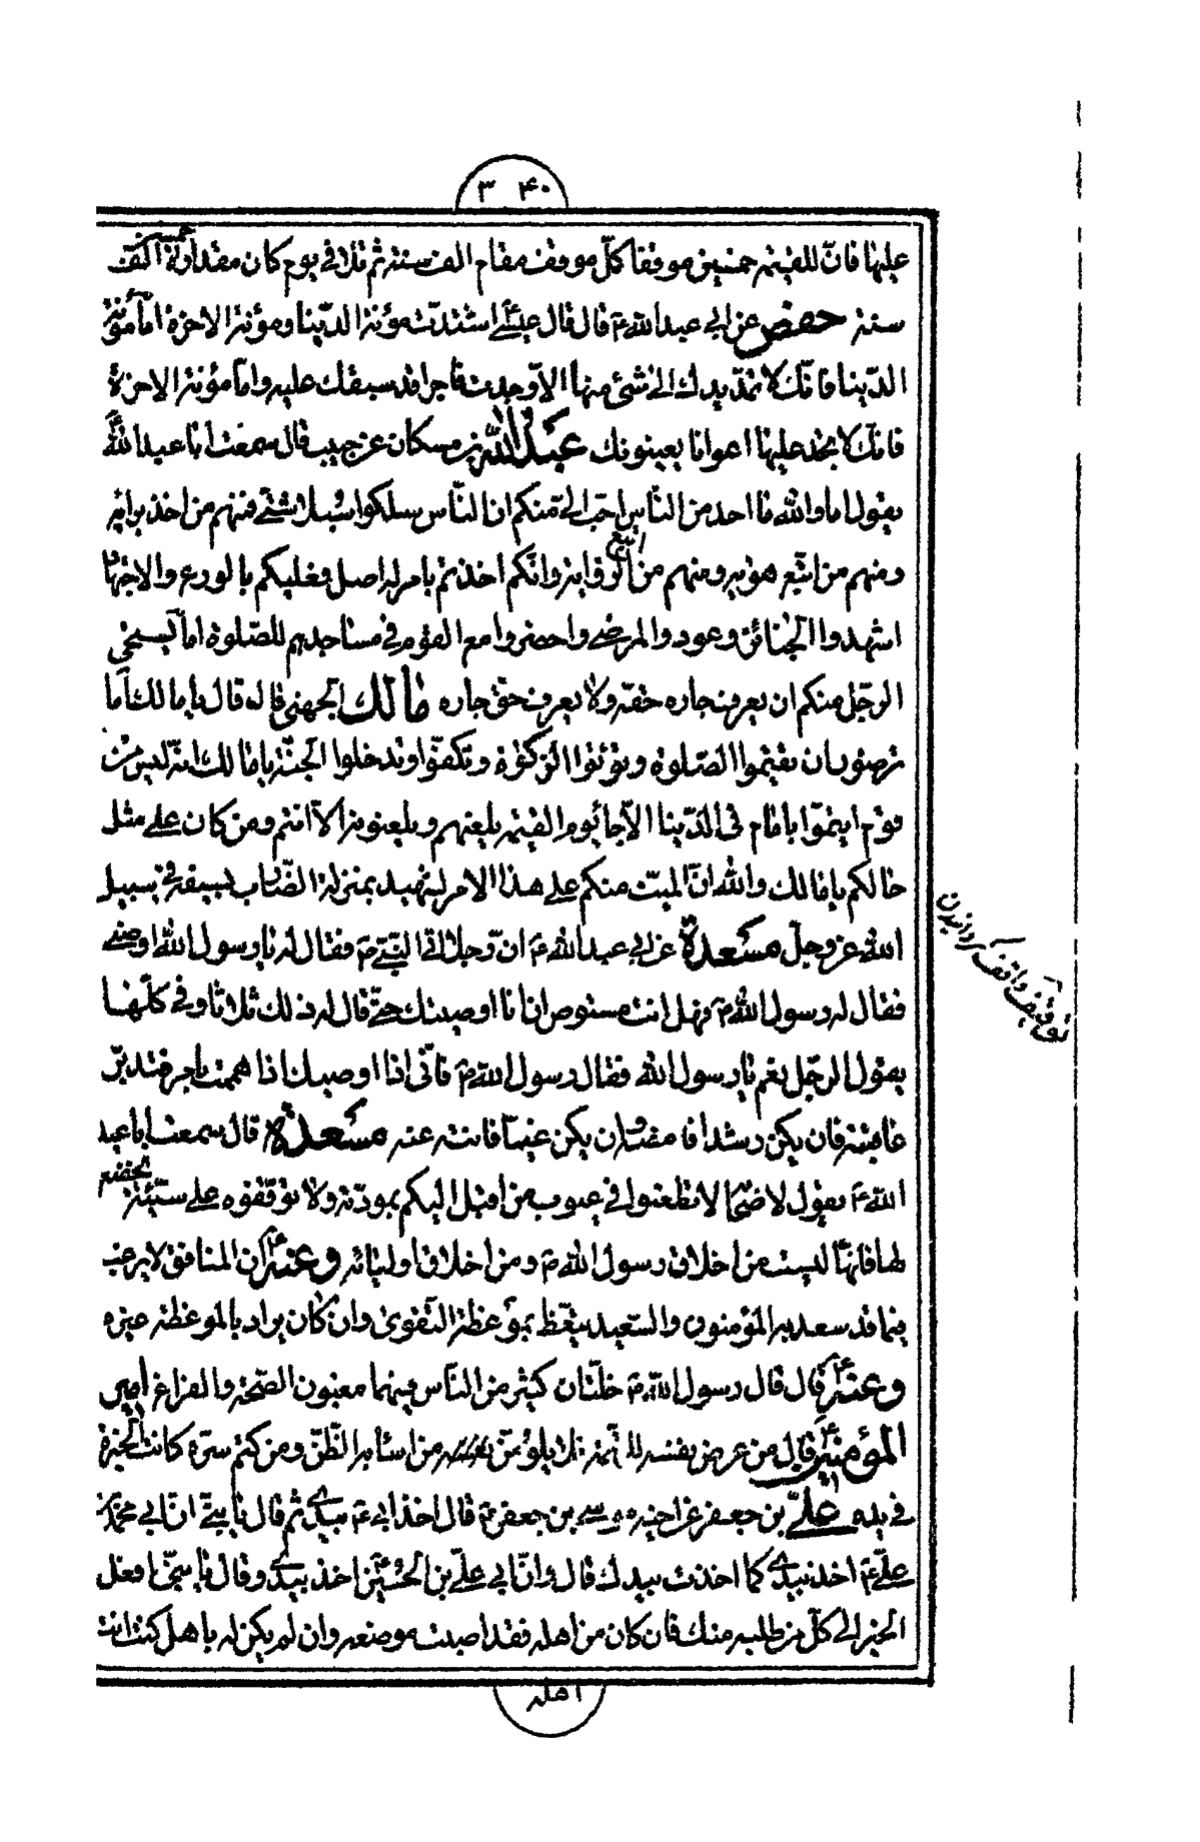 ۳۴۰
عليها فانّ للقيمة خمسين موقفا كلّ موقف مقام الف سنة ثم تلا في يوم كان مقداره خمسين الف
سنة حفص عن ابي عبد الله ع قال قال عيسى اشتدّت مؤنة الدّنيا ومؤنة الاخرة امّا مؤنة
الدّنيا فانّك لا تمدّ يدك الى شئ منها الاّ وجدت فاجرا قد سبقك عليه وامّا مؤنة الاخرة
فانّك لا تجد عليها اعوانا يعينونك عبد الله بن مسكان عن حبيب قال سمعت ابا عبد الله ع
يقول اما والله ما احد من النّاس احبّ اليّ منكم ان النّاس سلكوا سُبلا شتّى فمنهم من اخذ برأيه
ومنهم من اتّبع هواه ومنهم من اتبع الرّواية وانّكم اخذتم بامر له اصل فعليكم بالورع والاجتهاد
اشهدوا الجنائز وعودوا المرضى واحضروا مع القوم في مساجدهم للصّلوة اما يستحي
الرجّل منكم ان يعرف جاره حقّه ولا يعرف حقّ جاره مالك الجهني قال قال يا مالك اما
ترضون ان تقيموا الصّلوة وتؤتوا الزّكوة وتكفّوا وتدخلوا الجنّة يا مالك انه ليس من
قوم ايتمّوا بامام في الدّنيا الاّ جاء يوم القيمة يلعنهم ويلعنونه الاّ انتم ومن كان على مثل
حالكم يا مالك والله انّ الميّت منكم على هذا الامر لشهيد بمنزلة الضّارب بسيفه في سبيل
الله عزّ وجلّ مسعدة عن ابي عبد الله ع انّ رجلا اتى النّبيّ ص فقال له يا رسول الله اوصني
فقال له رسول الله ص فهل انت مستوص ان انا اوصيتك حتّى قال له ذلك ثلاثا وفي كلّها
يقول الرجّل نعم يا رسول الله فقال رسول الله ص فانّي اذا اوصيك اذا هممت بامر فتدبّر
عاقبته فان يكن رشدا فامضه وان يكن غيّا فانته عنه مسعدة قال سمعت ابا عبد
الله ع يقول لاصحابه لا تطعنوا في عيوب من اقبل اليكم بمودّته ولا توقّفوه على سيّئة يخضع
لها فانهّا ليست من اخلاق رسول الله ص ومن اخلاق اوليائه وعنه ع ان المنافق لا يرغب
فيما قد سعد به المؤمنون والسّعيد يتّعظ بموعظة التّقوى وان كان يراد بالموعظة غيره
وعنه ع قال قال رسول الله ص خلّتان كثير من النّاس فيهما مغبون الصّحة والفراغ امير
المؤمنين ع قال من عرض نفسه للتّهمة فلا يلومنّ من اساء به الظّنّ ومن كتم سرّه كانت الخيرة
في يده علىّ بن جعفر عن اخيه موسى بن جعفر ع قال اخذ ابي ع بيدي ثم قال يا بنيّ انّ ابي محمّد بن
علىّ ع اخذ بيدي كما اخذت بيدك قال وانّ ابي علىّ بن الحُسين ع اخذ بيدي وقال يا بنيّ افعل
الخير الى كلّ من طلبه منك فان كان من اهله فقد اصبت موضعه وان لم يكن له باهل كنت انت
اهله
توقيف واقف گردانیدن